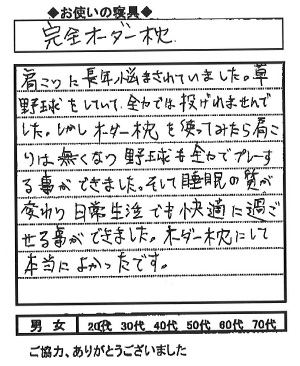 ◆お使いの寝具◆
完全オーダー枕
肩こりに長年悩まされていました。草
野球をしていて、全力では投げれませんで
した。しかしオーダー枕を使ってみたら肩こ
りは無くなり野球も全力でプレーす
る事ができました。そして睡眠の質が
変わり日常生活でも快適に過ご
せる事ができました。オーダー枕にして
本当によかったです。
男 女 20代 30代 40代 50代 60代 70代
ご協力、ありがとうございました